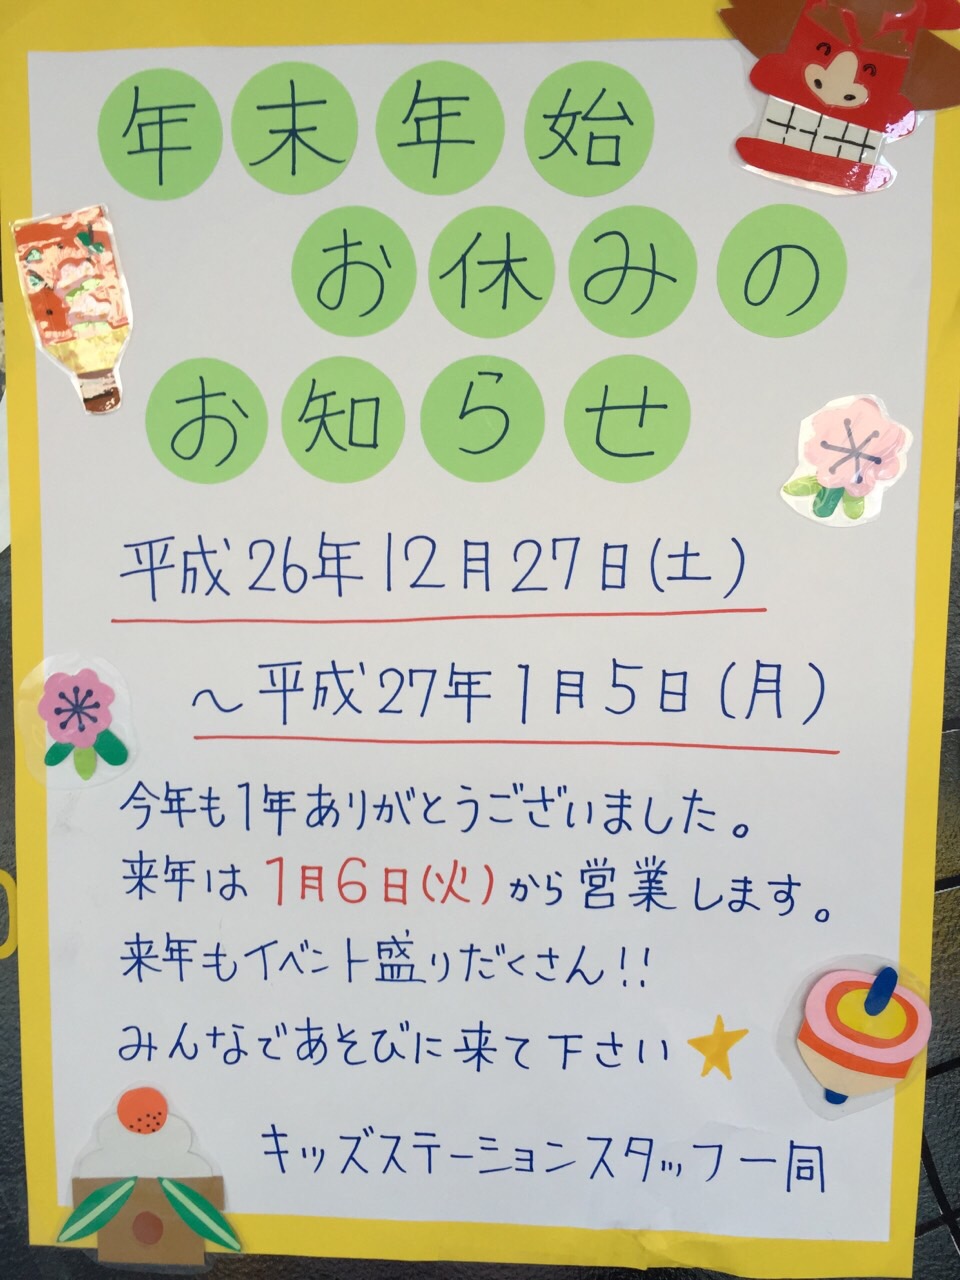 年末年始
お休みの
お知らせ
平成26年12月27日(土)
～平成27年1月5日(月)
今年も1年ありがとうございました。
来年は1月6日(火)から営業します。
来年もイベント盛りだくさん!!
みんなであそびに来て下さい
キッズステーションスタッフ一同